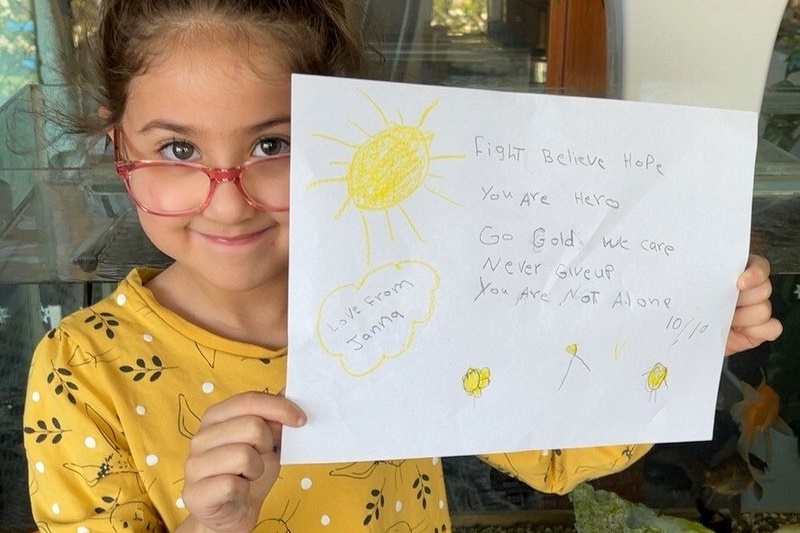 Fight Believe Hope
You Are Hero
Go Gold we care
Never Giveup
You Are Not Alone
10/10
Love From
Janna